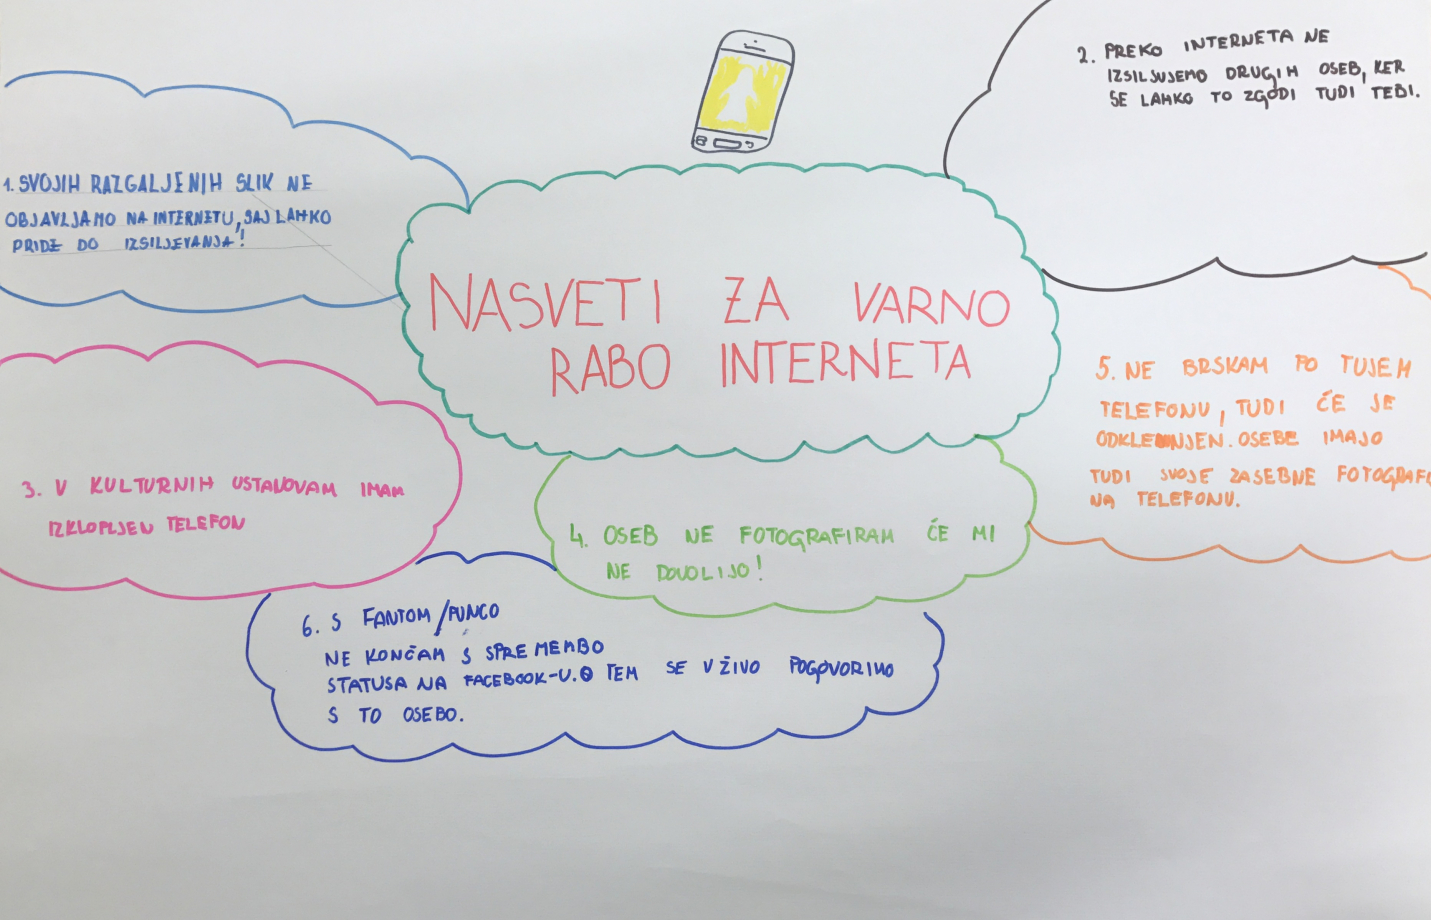 NASVETI ZA VARNO
RABO INTERNETA
1. SVOJIH RAZGALJENIH SLIK NE
OBJAVLJAMO NA INTERNETU, SAJ LAHKO
PRIDE DO IZSILJEVANJA!
2. PREKO INTERNETA NE
IZSILJUJEMO DRUGIH OSEB, KER
SE LAHKO TO ZGODI TUDI TEBI.
3. V KULTURNIH USTANOVAM IMAM
IZKLOPLJEN TELEFON
4. OSEB NE FOTOGRAFIRAM ČE MI
NE DOVOLIJO!
5. NE BRSKAM PO TUJEM
TELEFONU, TUDI ČE JE
ODKLENJEN. OSEBE IMAJO
TUDI SVOJE ZASEBNE
NA TELEFONU.
6. S FANTOM/PUNCO
NE KONČAM S SPREMEMBO
STATUSA NA FACEBOOK-U. O TEM SE V ŽIVO POGOVORIMO
S TO OSEBO.